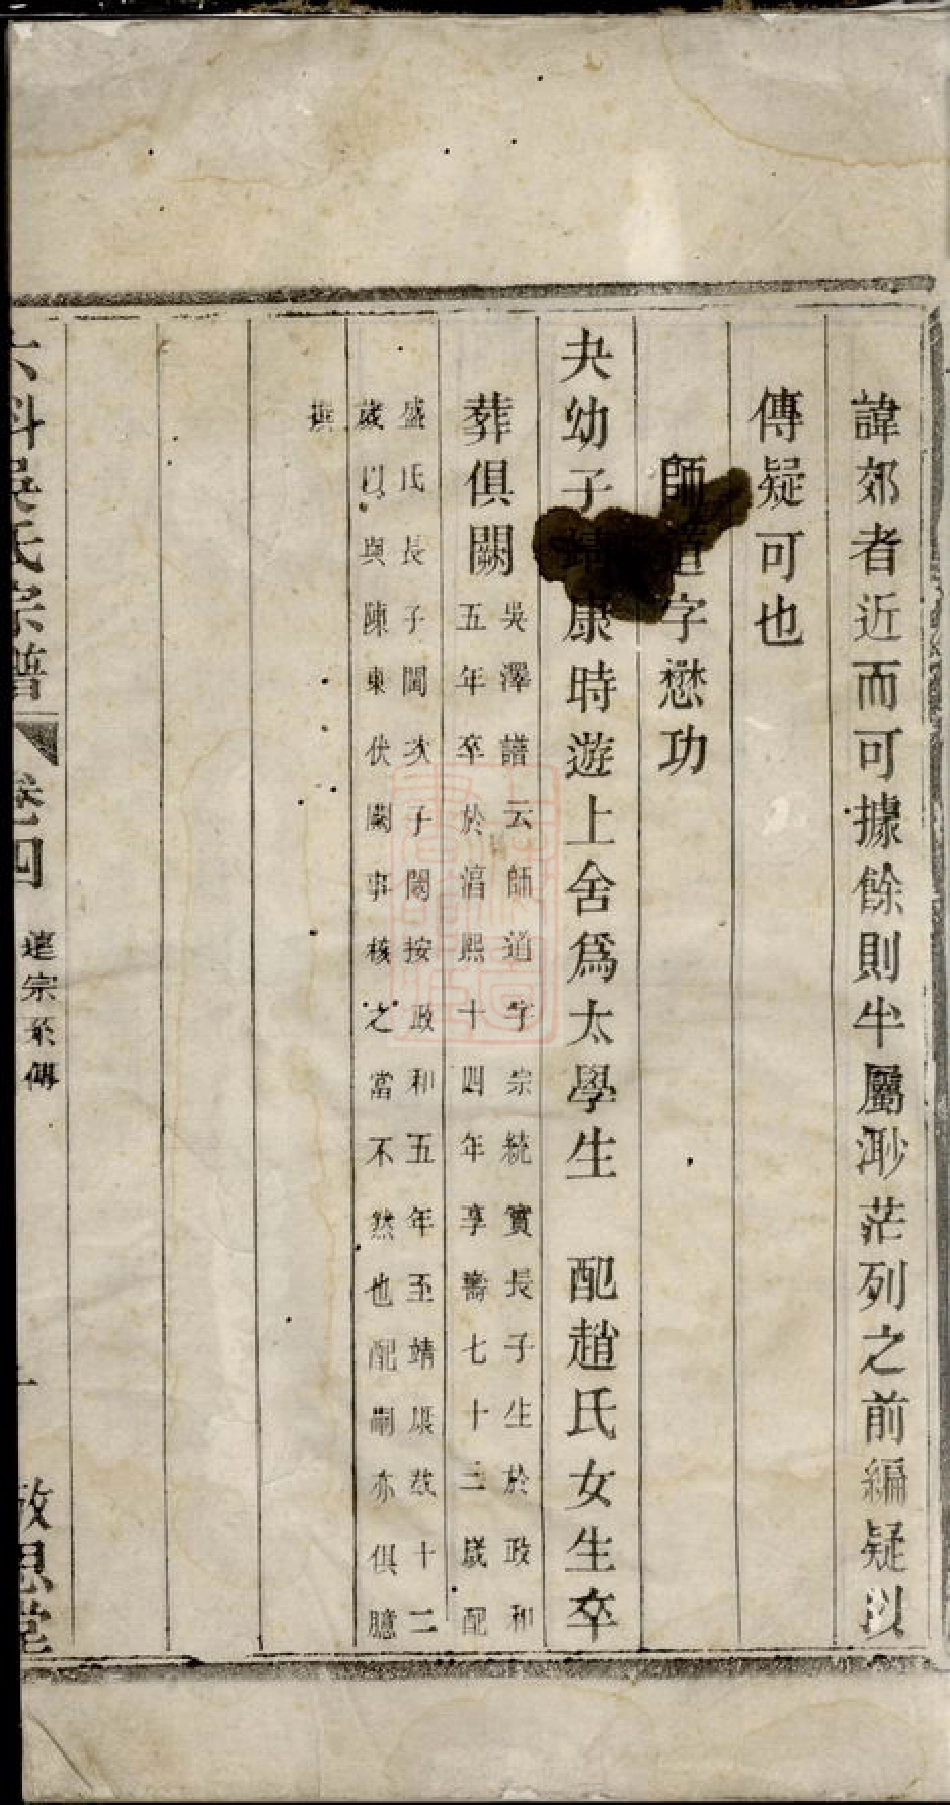 諱郊者近而可據餘則半屬渺茫列之前編疑以
傳疑可也
師道字懋功
夬幼子靖康時遊上舍爲太學生　配趙氏女生卒
葬俱闕
吳澤譜云師道字宗統實長子生於政和
五年卒於淳熙十四年享壽七十三歲配
盛氏長子閶次子閎按政和五年至靖康僅十二
歲以與陳東伏闕事核之當不然也配嗣亦俱臆
撰
吳氏宗譜 卷四 遷宗系傳 敬思堂